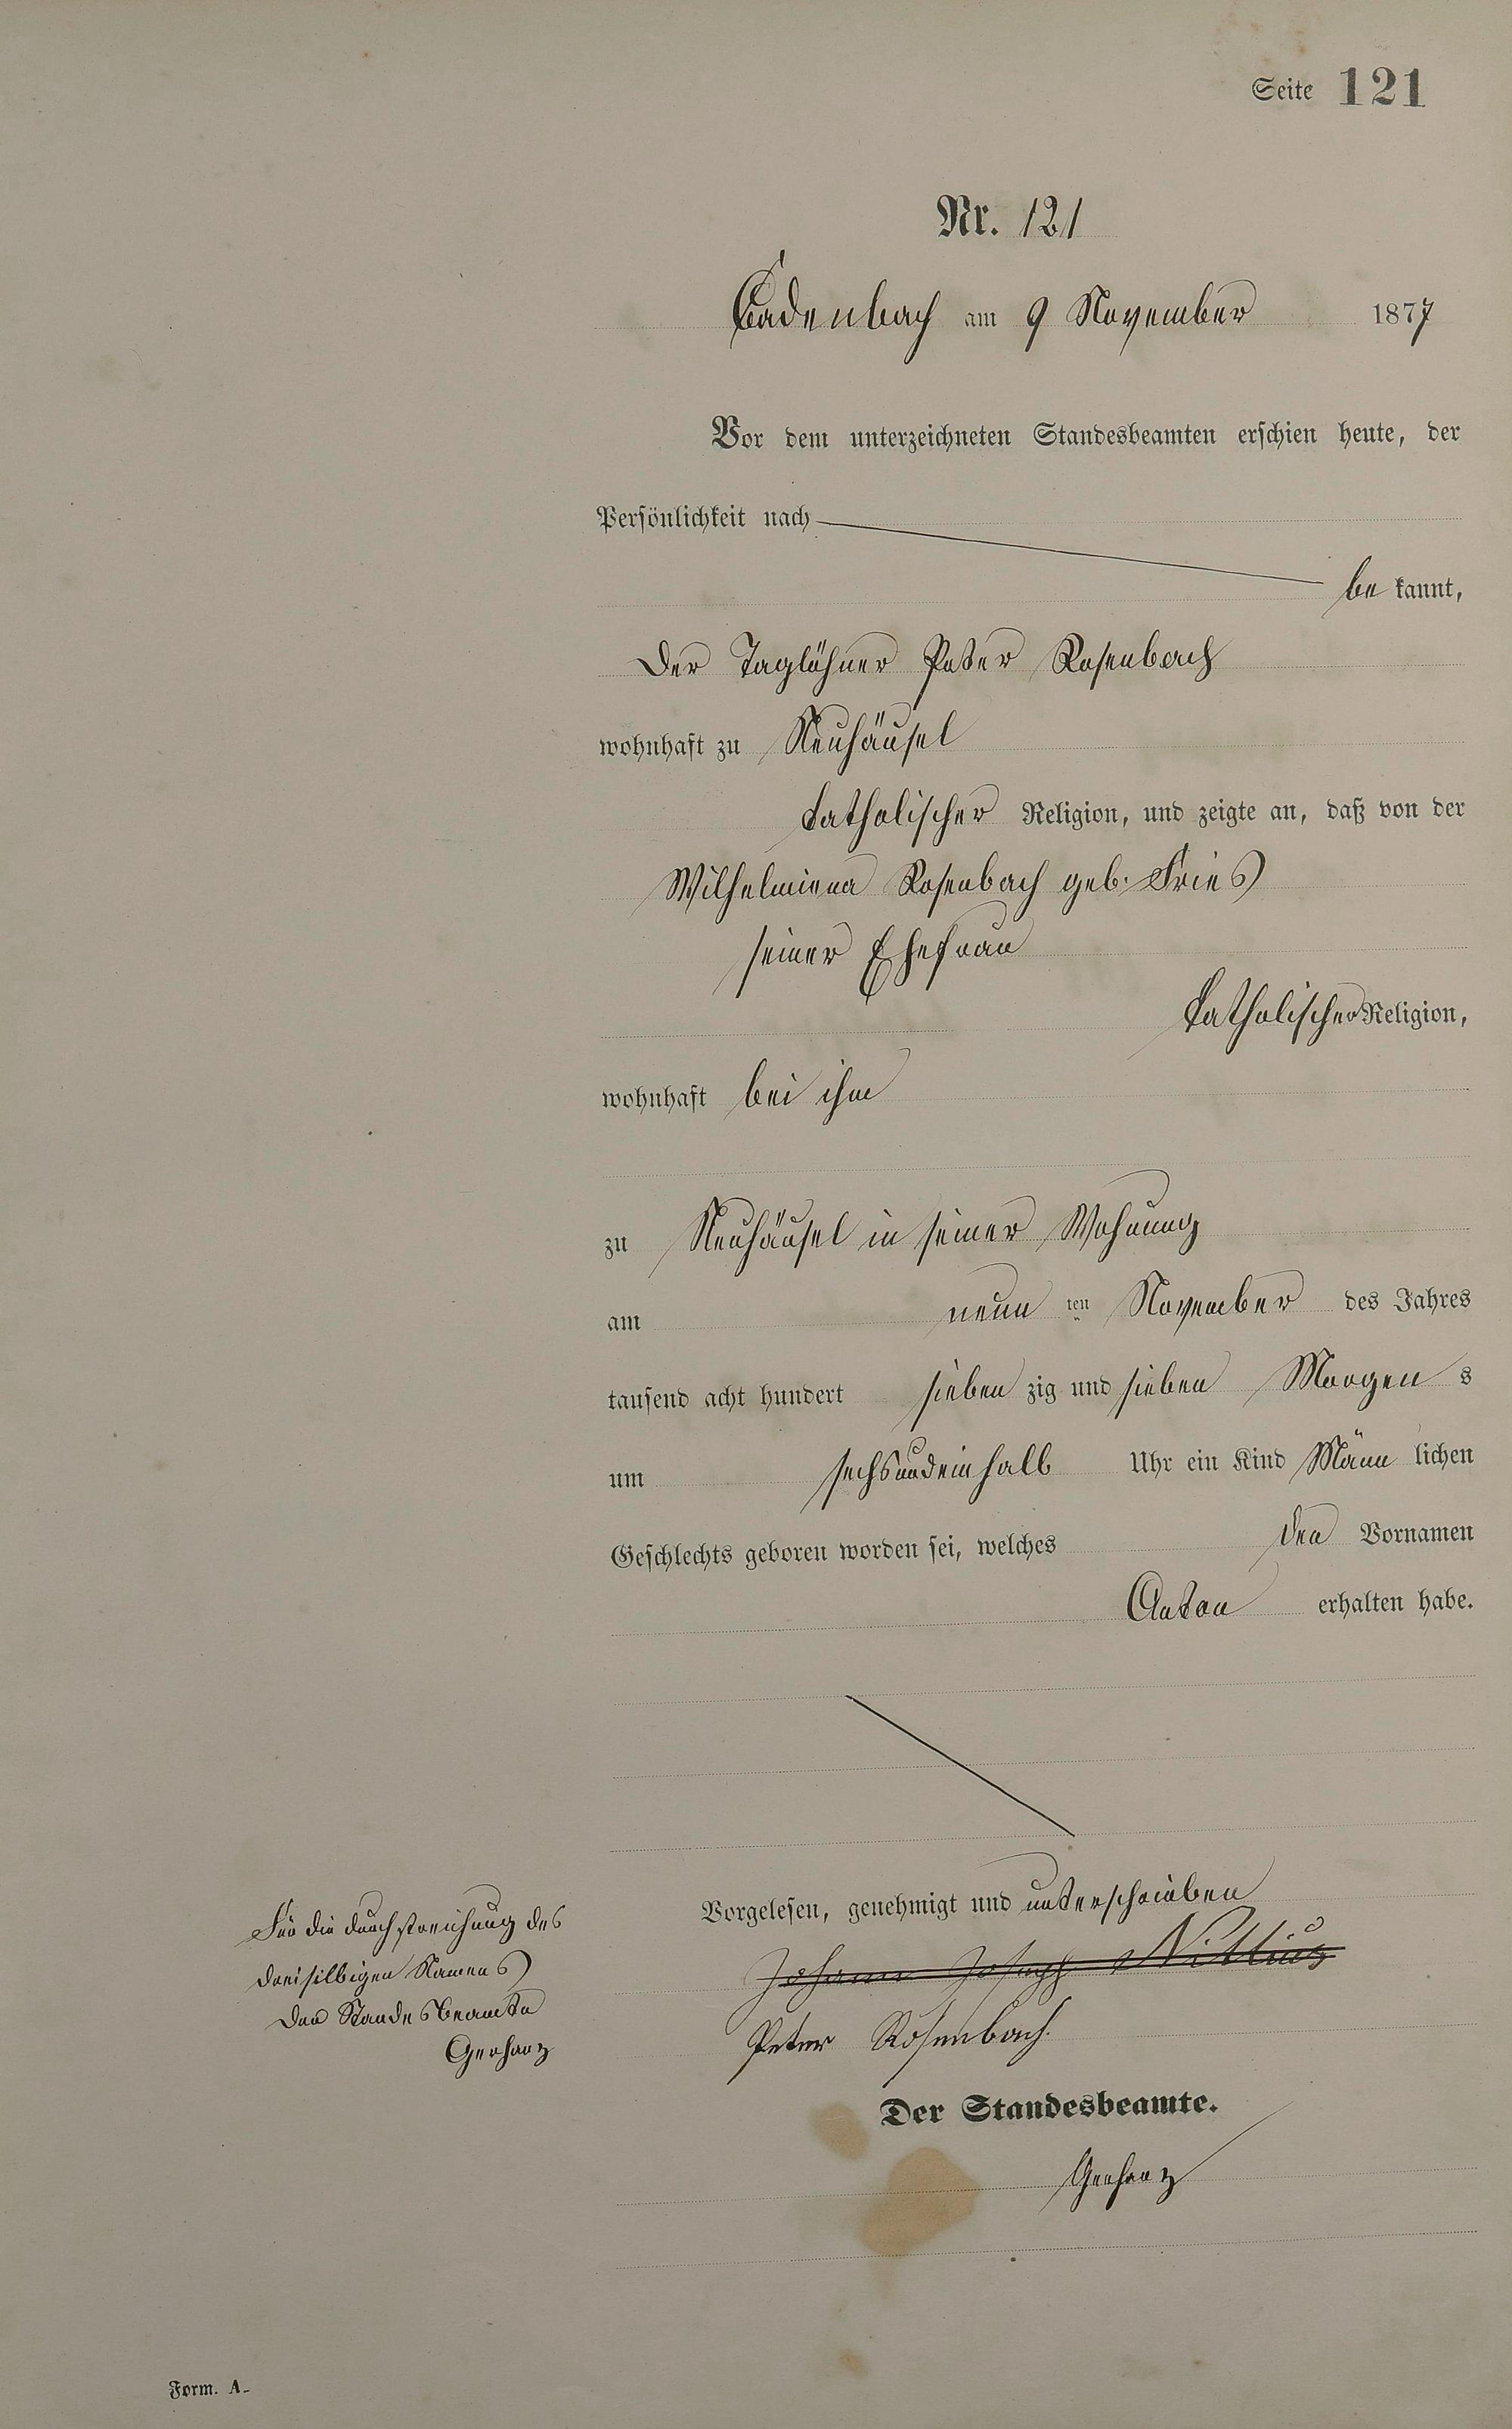 Seite 121
Nr. 121
Cadenbach am 9 November 1877
Vor dem unterzeichneten Standesbeamten erschien heute, der
Persönlichkeit nach
be kannt,
der Taglöhner Peter Rosenbach
wohnhaft zu Neuhäusel
katholischer Religion, und zeigte an, daß von der
Wilhelmiena Rosenbach geb. Fries
seiner Ehefrau
katholischer Religion,
wohnhaft bei ihm
zu Neuhäusel in seiner Wohnung
am neun ten November des Jahres
tausend acht hundert sieben zig und sieben Morgen s
um sechsundeinhalb Uhr ein Kind Männ lichen
Geschlechts geboren worden sei, welches den Vornamen
Anton erhalten habe.
Vorgelesen, genehmigt und unterschrieben
Johann Joseph
Peter Rosenbach.
Für die durchstreichung des
dreisilbigen Namens
der Standesbeamte
Gerharz
Der Standesbeamte.
Gerharz
Form. A.